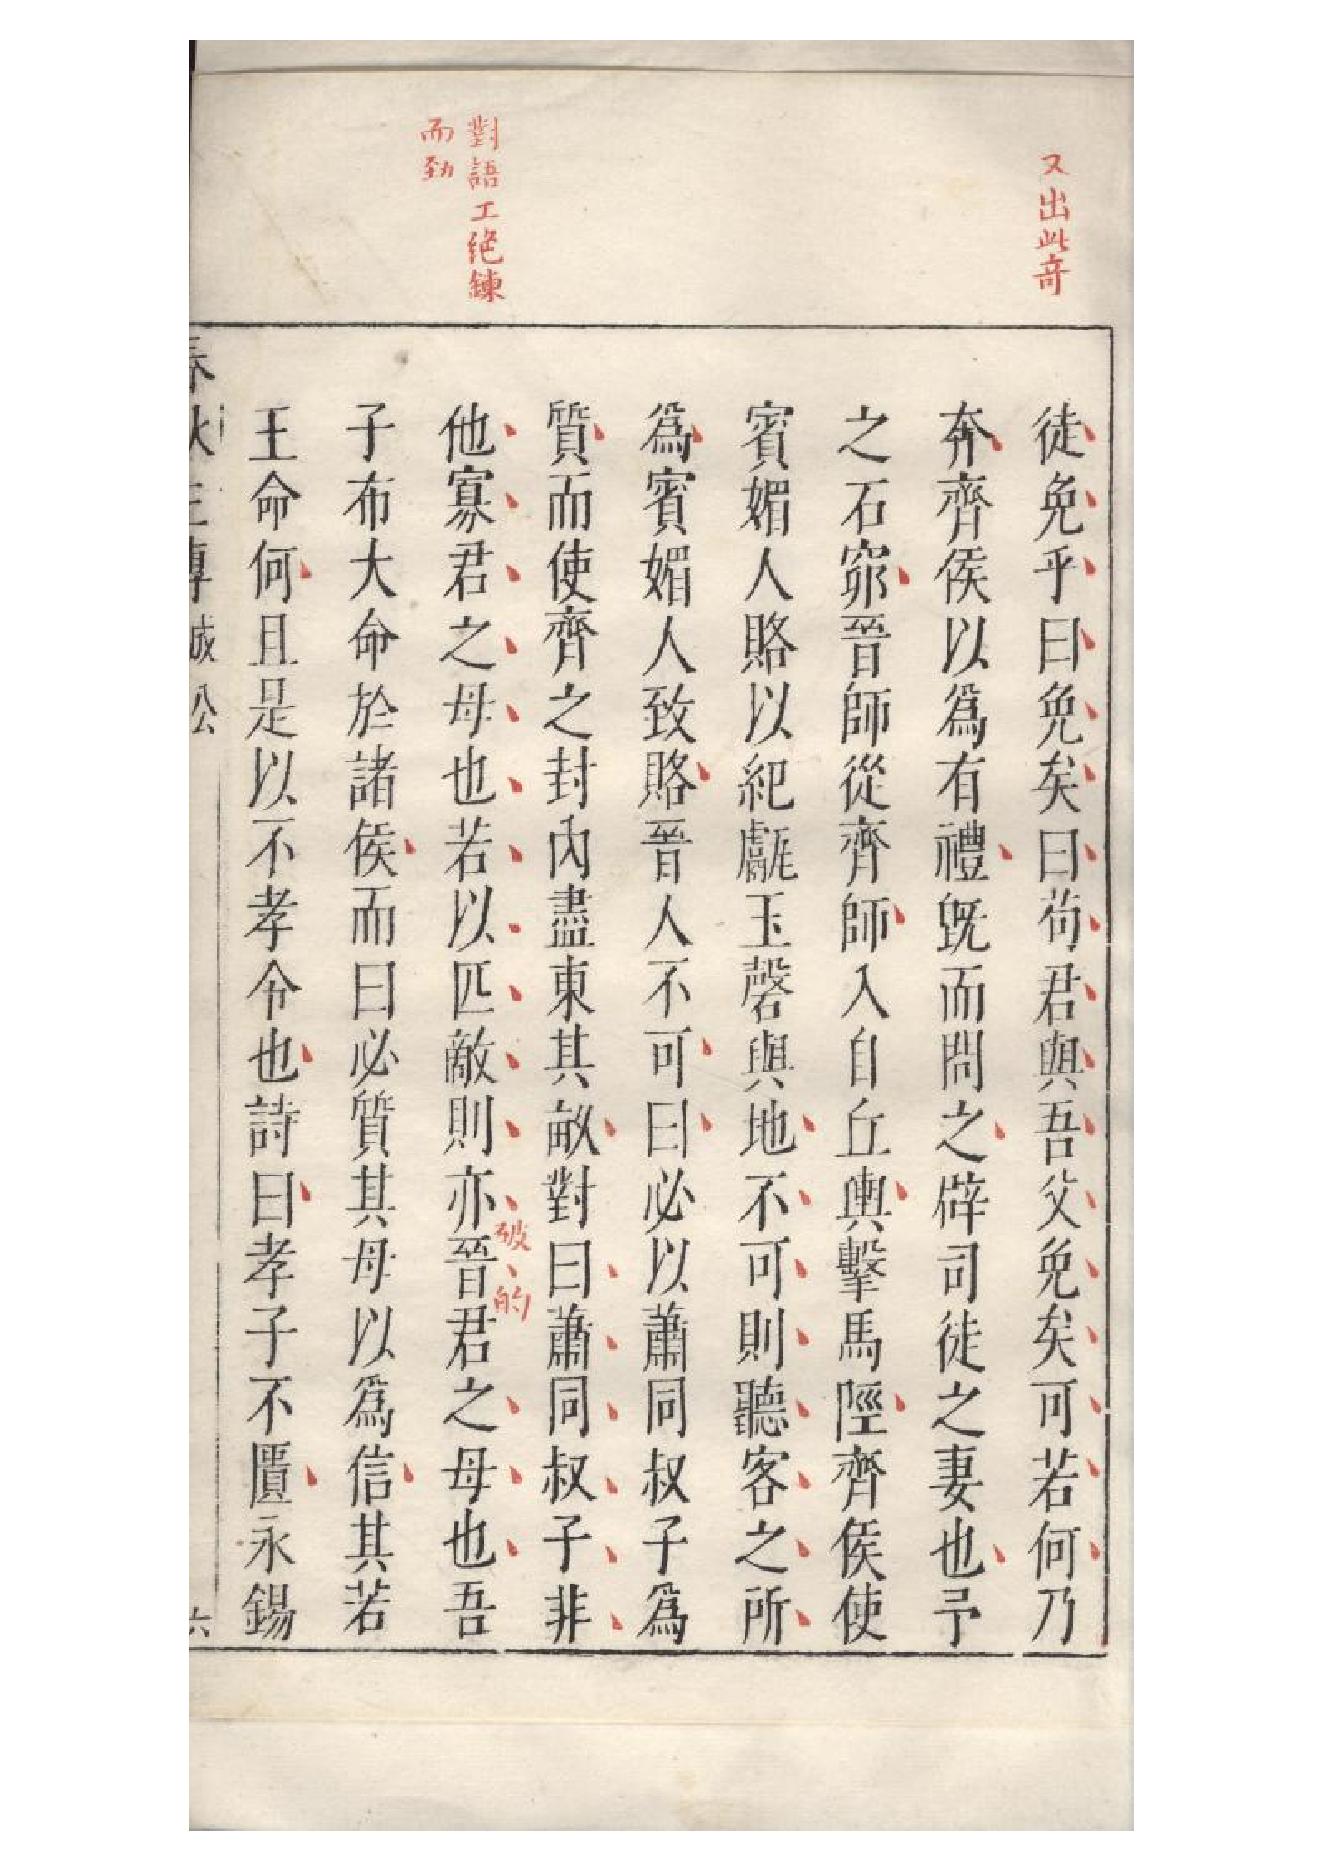 又出此奇
對語工絕鍊
而勁
徒免乎曰免矣曰苟君與吾父免矣可若何乃
奔齊侯以爲有禮旣而問之辟司徒之妻也予
之石窌晉師從齊師入自丘輿擊馬陘齊侯使
賓媚人賂以紀甗玉磬與地不可則聽客之所
爲賓媚人致賂晉人不可曰必以蕭同叔子爲
質而使齊之封內盡東其畝對曰蕭同叔子非
他寡君之母也若以匹敵則亦晉君之母也吾
破的
子布大命於諸侯而曰必質其母以爲信其若
王命何且是以不孝令也詩曰孝子不匱永錫
春秋左傳 成公 六